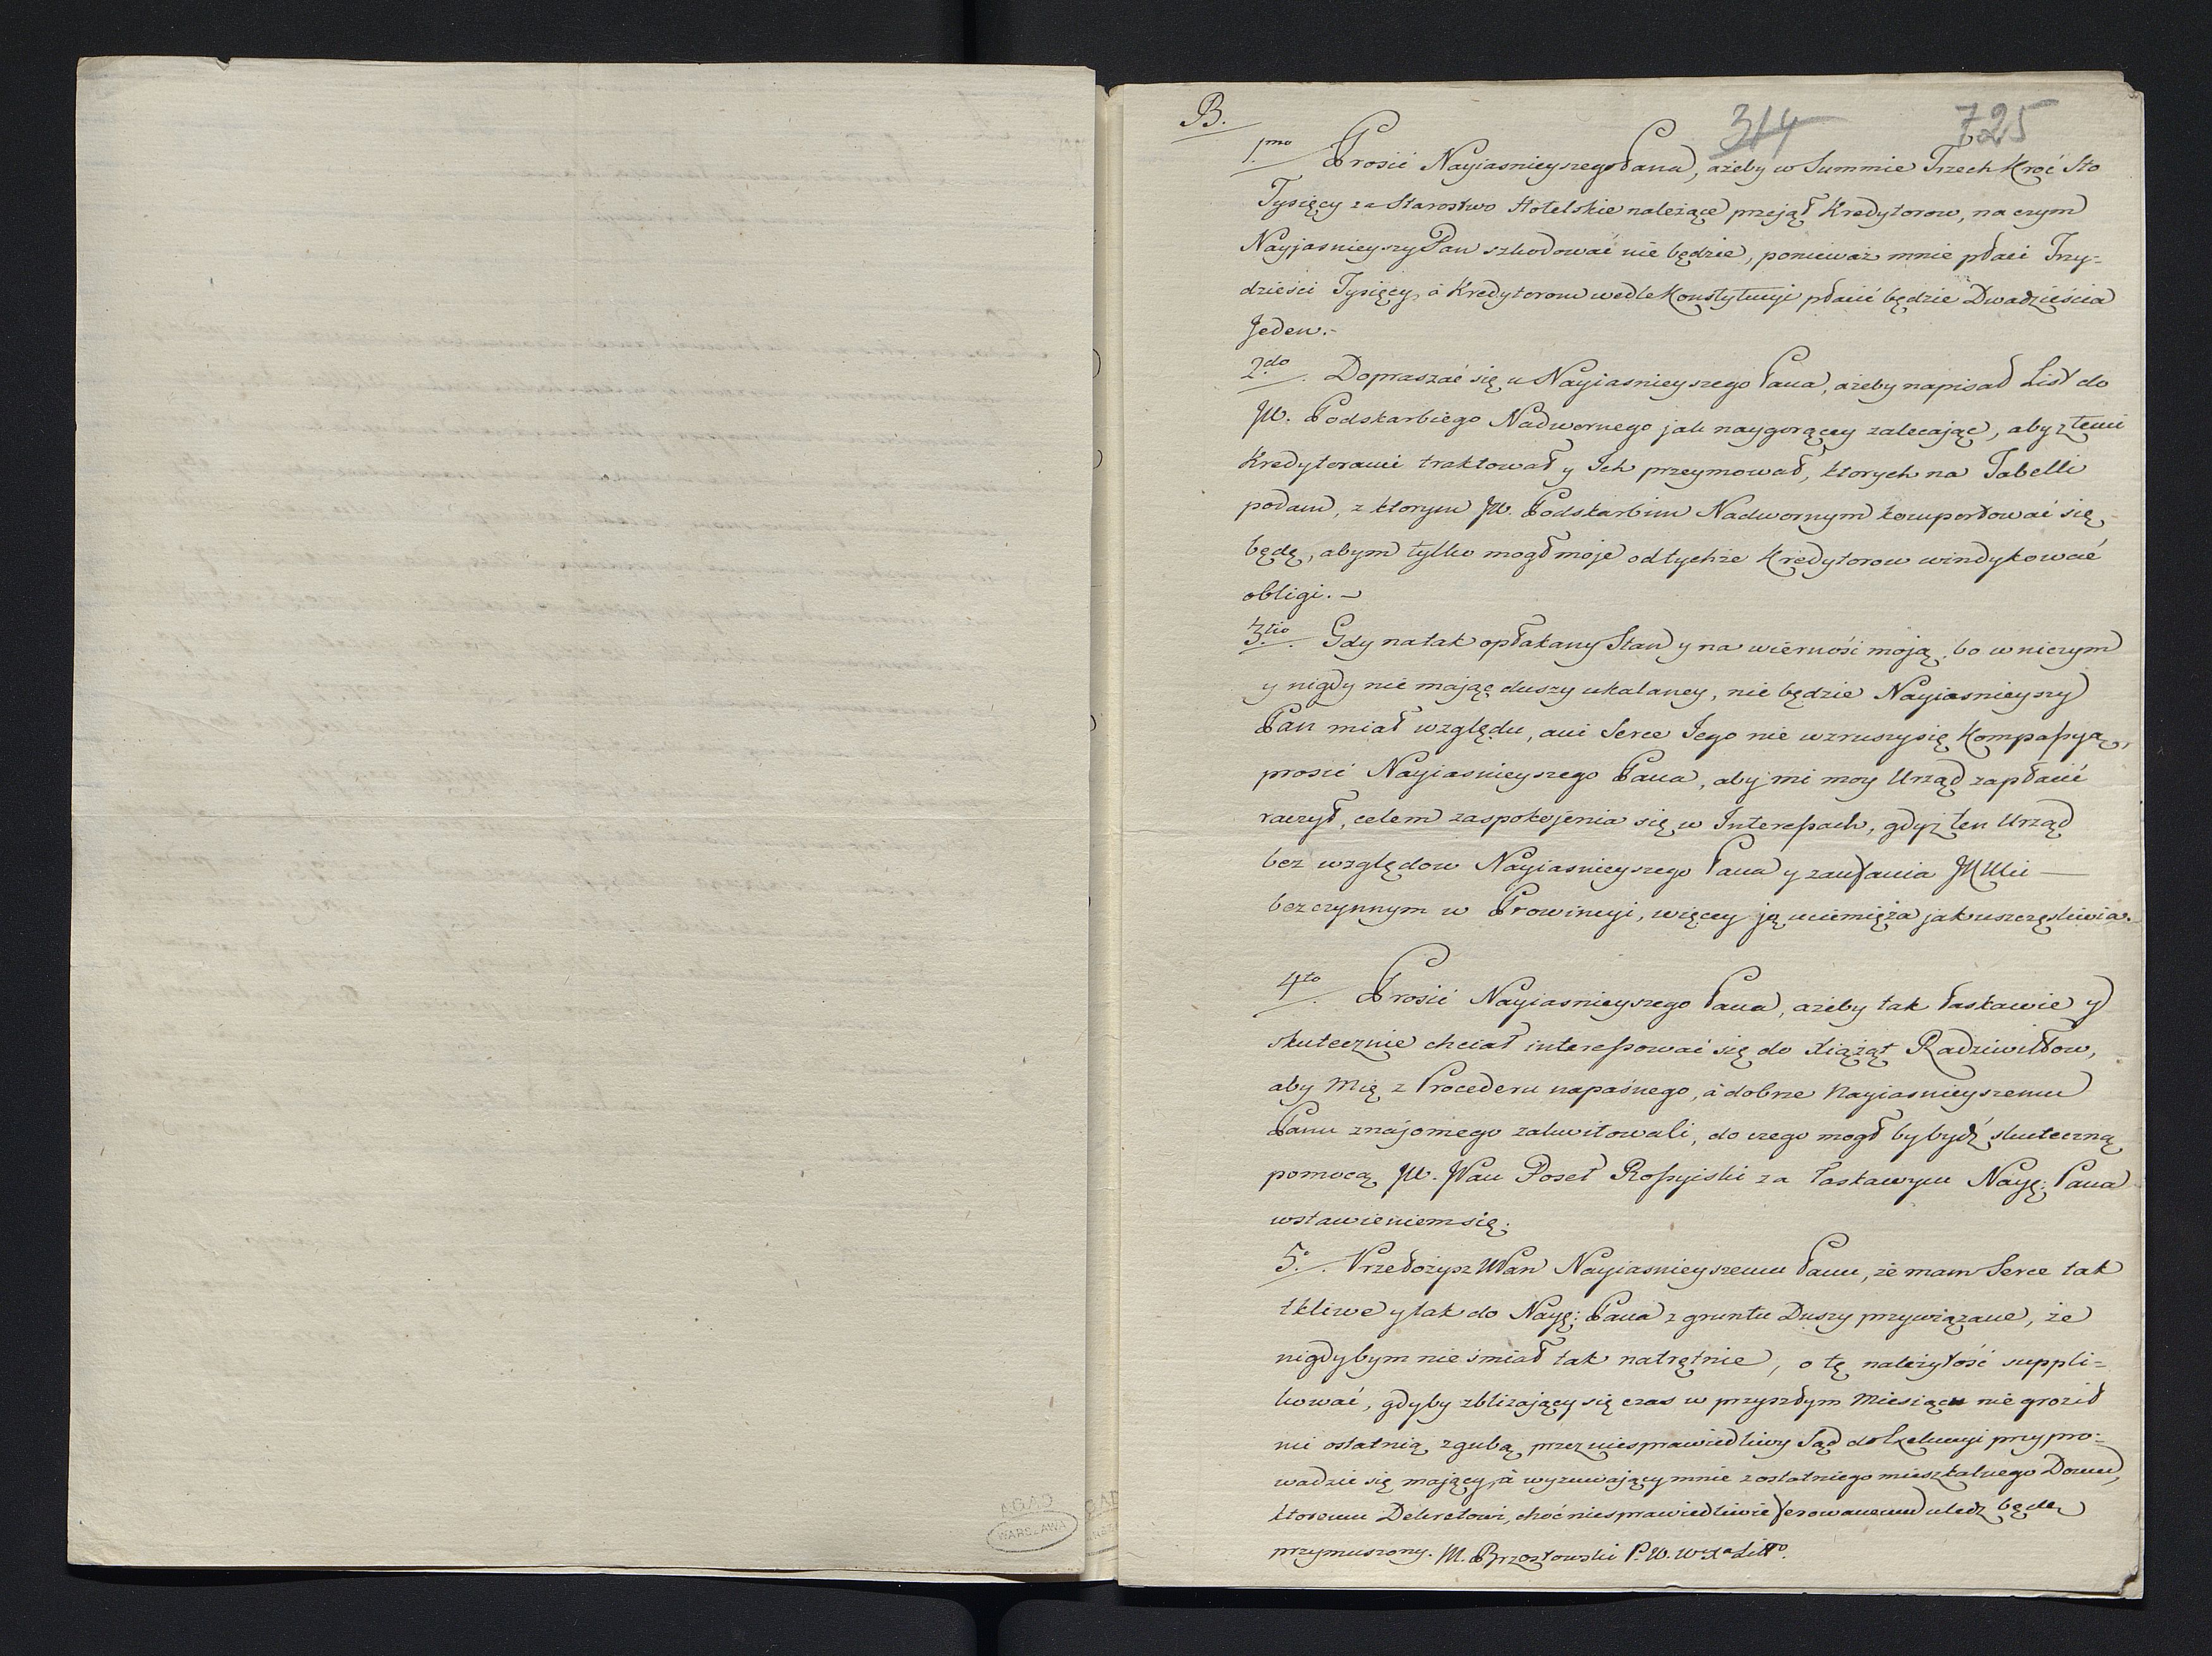 B.
314 725
1mo Prosić Nayiasnieyszego Pana, ażeby w Summie Trzech Kroć Sto
Tysięcy za Starostwo Hotelskie należące przejął Kredytorow, na czym
Nayjasnieyszy Pan szkodować nie będzie, ponieważ mnie płaci Trzy=
dzieści Tysięcy, á Kredytorom wedle Konstytucyi płacić będzie Dwadzieścia
Jeden.-
2do. Dopraszać się u Nayiasnieyszego Pana, ażeby napisał List do
JW. Podskarbiego Nadwornego jak naygorącey zalecając, aby z temi
Kredytorami traktował y Ich przeymował, ktorych na Tabelli
podam, z ktorym JW. Podskarbim Nadwornym komportować się
będę, abym tylko mogł moje od tychże Kredytorow windykować
obligi. -
3tio. Gdy na tak opłakany Stan y na wierność moją, bo w niczym
y nigdy nie mając duszy ukalaney, nie będzie Nayiasnieyszy
Pan miał względu, ani Serce Jego nie wzruszy się Kompassyą,
prosić Nayiasnieyszego Pana, aby mi moy Urząd zapłacić
raczył, celem zaspokojenia się w Interessach, gdyż ten Urząd
bez względow Nayiasnieyszego Pana y zaufania
bezczynnym w Prowincyi, więcey ją uciemięża jak uszczęśliwia.
4to. Prosić Nayiasnieyszego Pana, ażeby tak łaskawie y
skutecznie chciał interessować się do Xiążąt Radziwiłłow,
aby Mię z Procederu napaśnego, á dobrze Nayiasnieyszemu
Panu znajomego zakwitowali, do czego mogł by bydź skuteczną
pomocą JW. JPan Poseł Rossyiski za łaskawym Nayę: Pana
wstawieniem się.
5o. Przełożysz WPan Nayiasnieyszemu Panu, że mam Serce tak
tkliwe y tak do Nayę: Pana z gruntu Duszy przywiązane, że
nigdybym nie śmiał tak natrętnie, o tę należytość suppli=
kować, gdyby zbliżający się czas w przyszłym Miesiącu nie groził
mi ostatnią zgubą przez niesprawiedliwy Sąd do Exekucyi przypro=
wadzić się mający, á wyzuwający mnie z ostatniego mieszkalnego Domu,
ktoremu Dekretowi, choć niesprawiedliwie ferowanemu uledz będę
przymuszony. M. Brzostowski P. W. W. Xa Litto.
AGAD
WARSZAWA